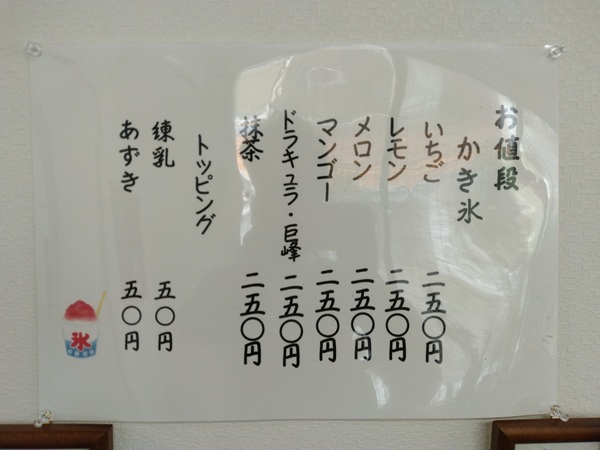 お値段
かき氷
いちご 二五〇円
レモン 二五〇円
メロン 二五〇円
マンゴー 二五〇円
ドラキュラ・巨峰 二五〇円
抹茶 二五〇円
トッピング
練乳 五〇円
あずき 五〇円
氷